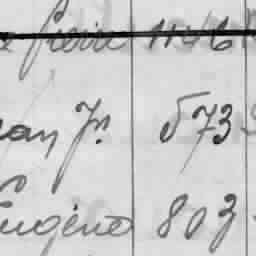 Pierre 1146
Jr. 573
Eugène 803